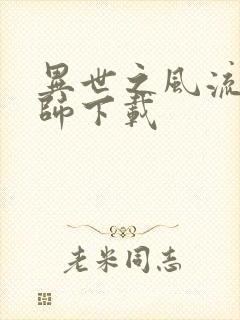 異世之風流
師下載
老米同志